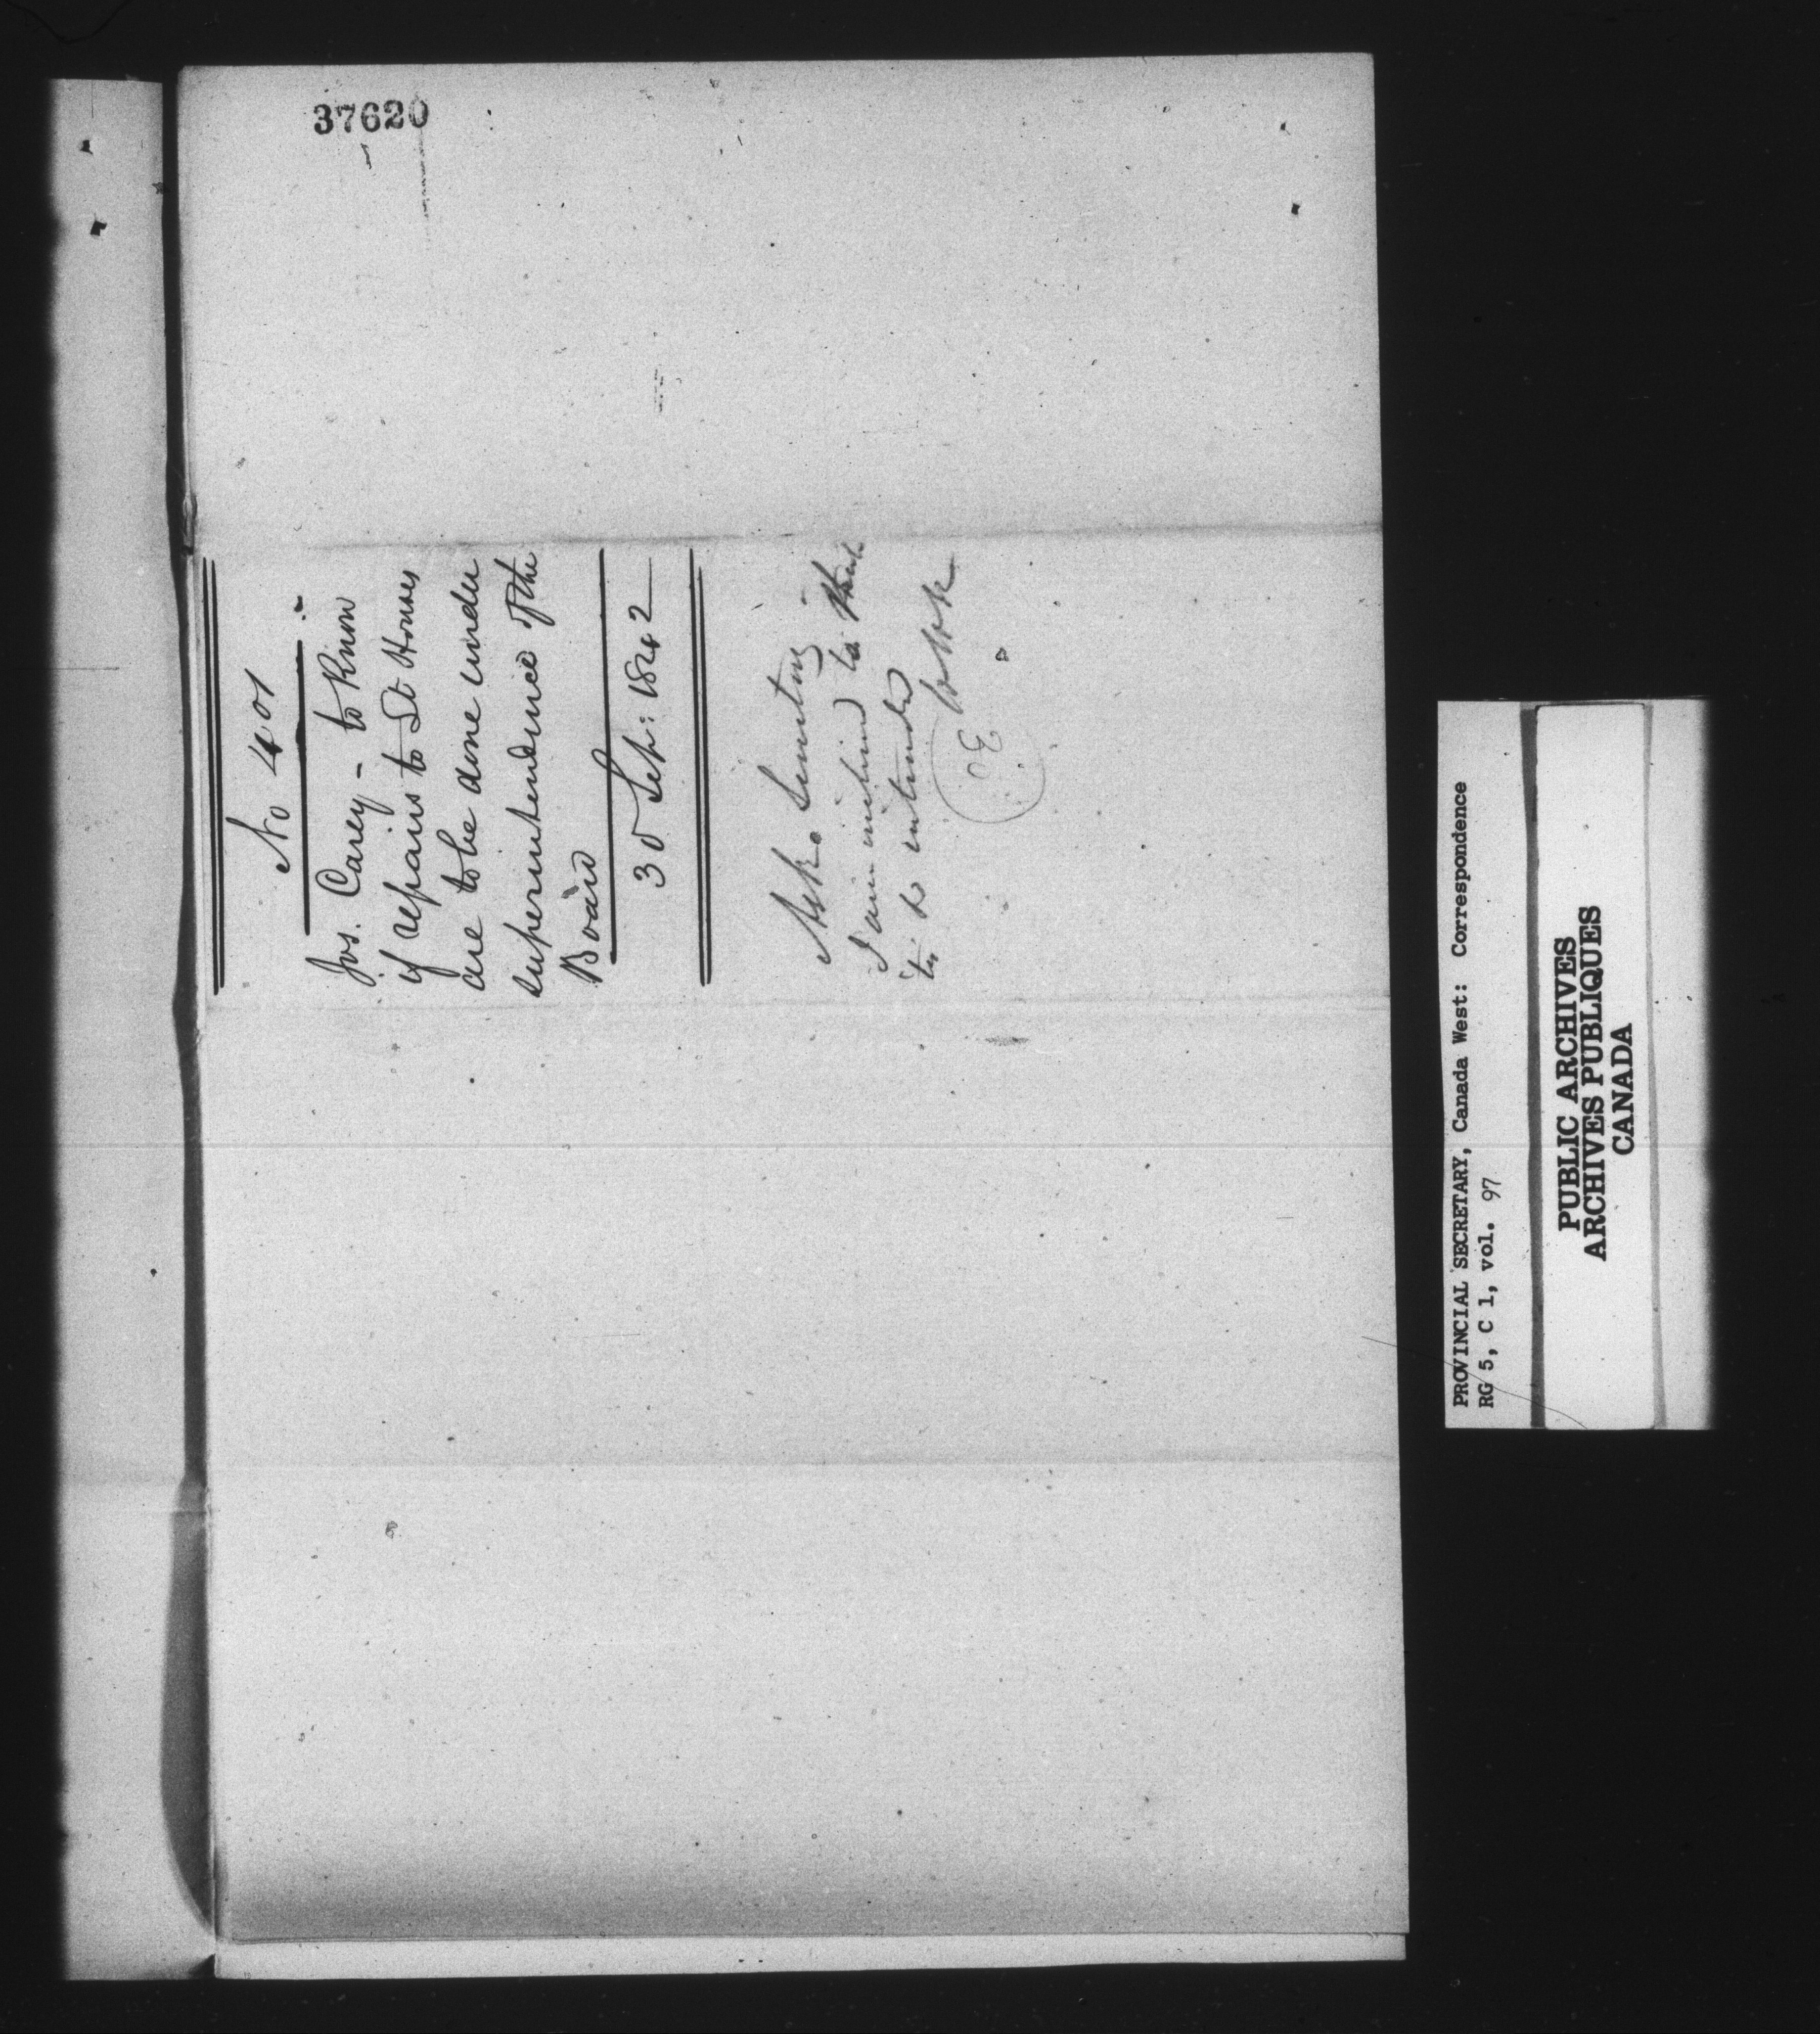 37620
No 4401
Jos. Carey - to know
if repairs to Lt Houses
are to be done under
superintendence of the
Board
30 Sep: 1842
I am inclined to think
PROVINCIAL SECRETARY, Canada West: Correspondence
RG 5, C 1, vol. 97
PUBLIC ARCHIVES
ARCHIVES PUBLIQUES
CANADA